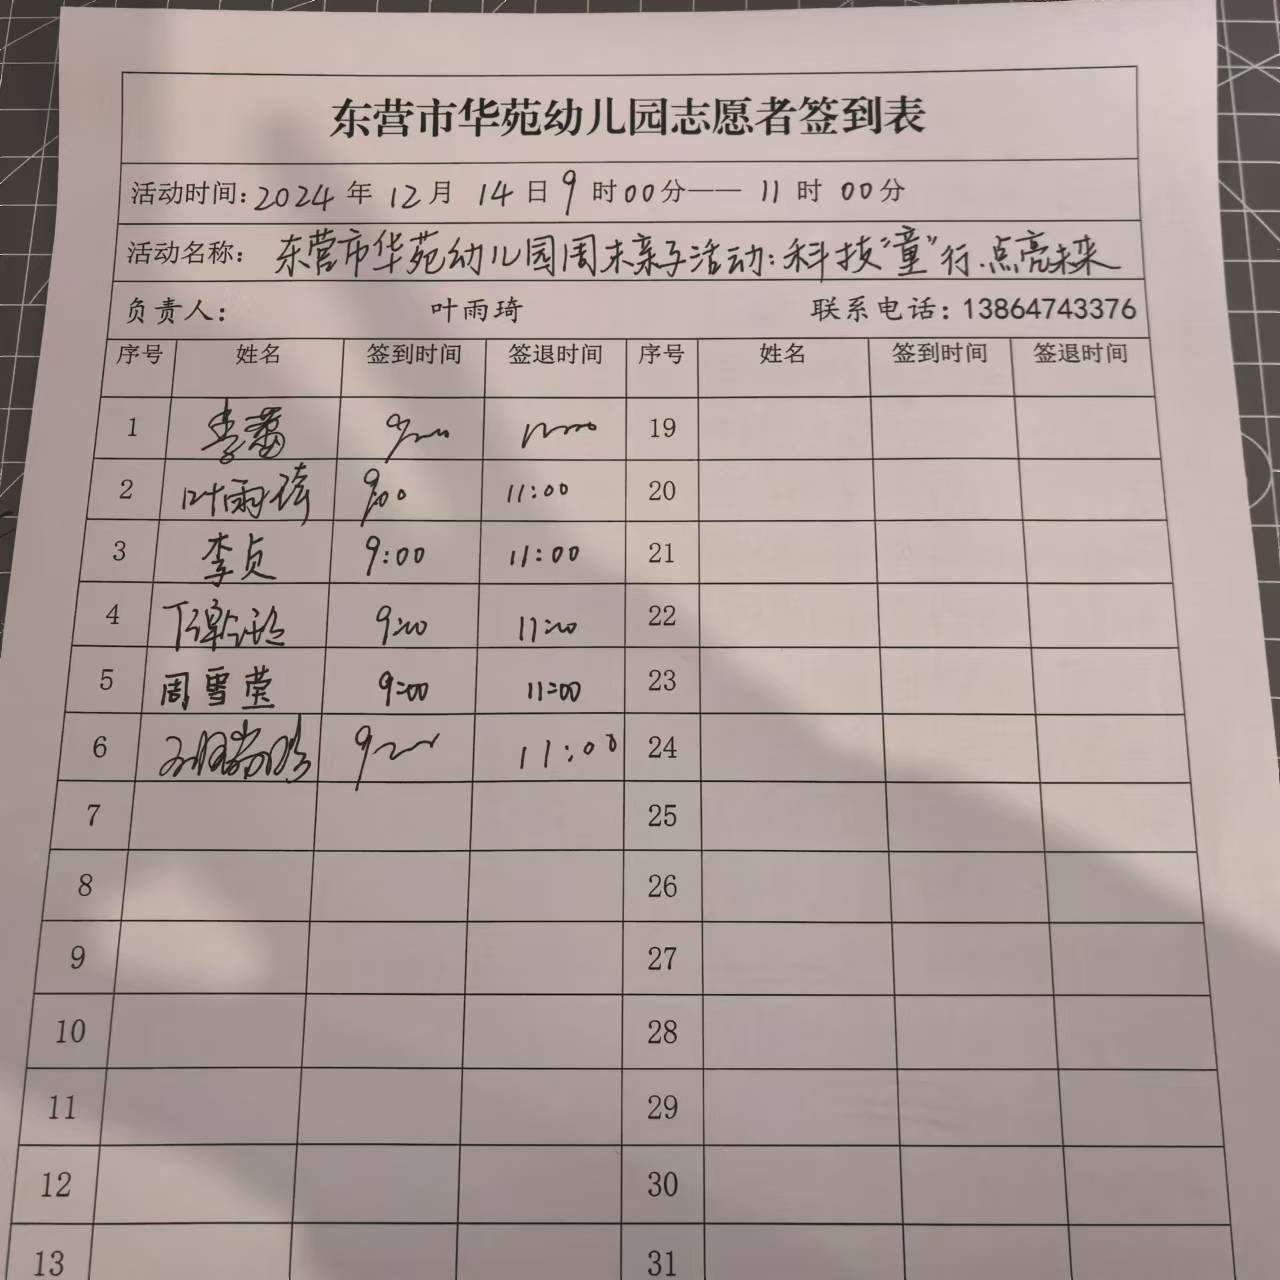 东营市华苑幼儿园志愿者签到表
活动时间:2024年12月14日9时00分——11时00分
活动名称: 东营市华苑幼儿园周末亲子活动:科技"童"行.点亮未来
负责人: 叶雨琦 联系电话:13864743376
序号 姓名 签到时间 签退时间 序号 姓名 签到时间 签退时间
1 李蕾 19
2 叶雨琦 9:00 11:00 20
3 李贞 9:00 11:00 21
4 9:00 11:00 22
5 周雪莹 9:00 11:00 23
6 11:00 24
7 25
8 26
9 27
10 28
11 29
12 30
13 31